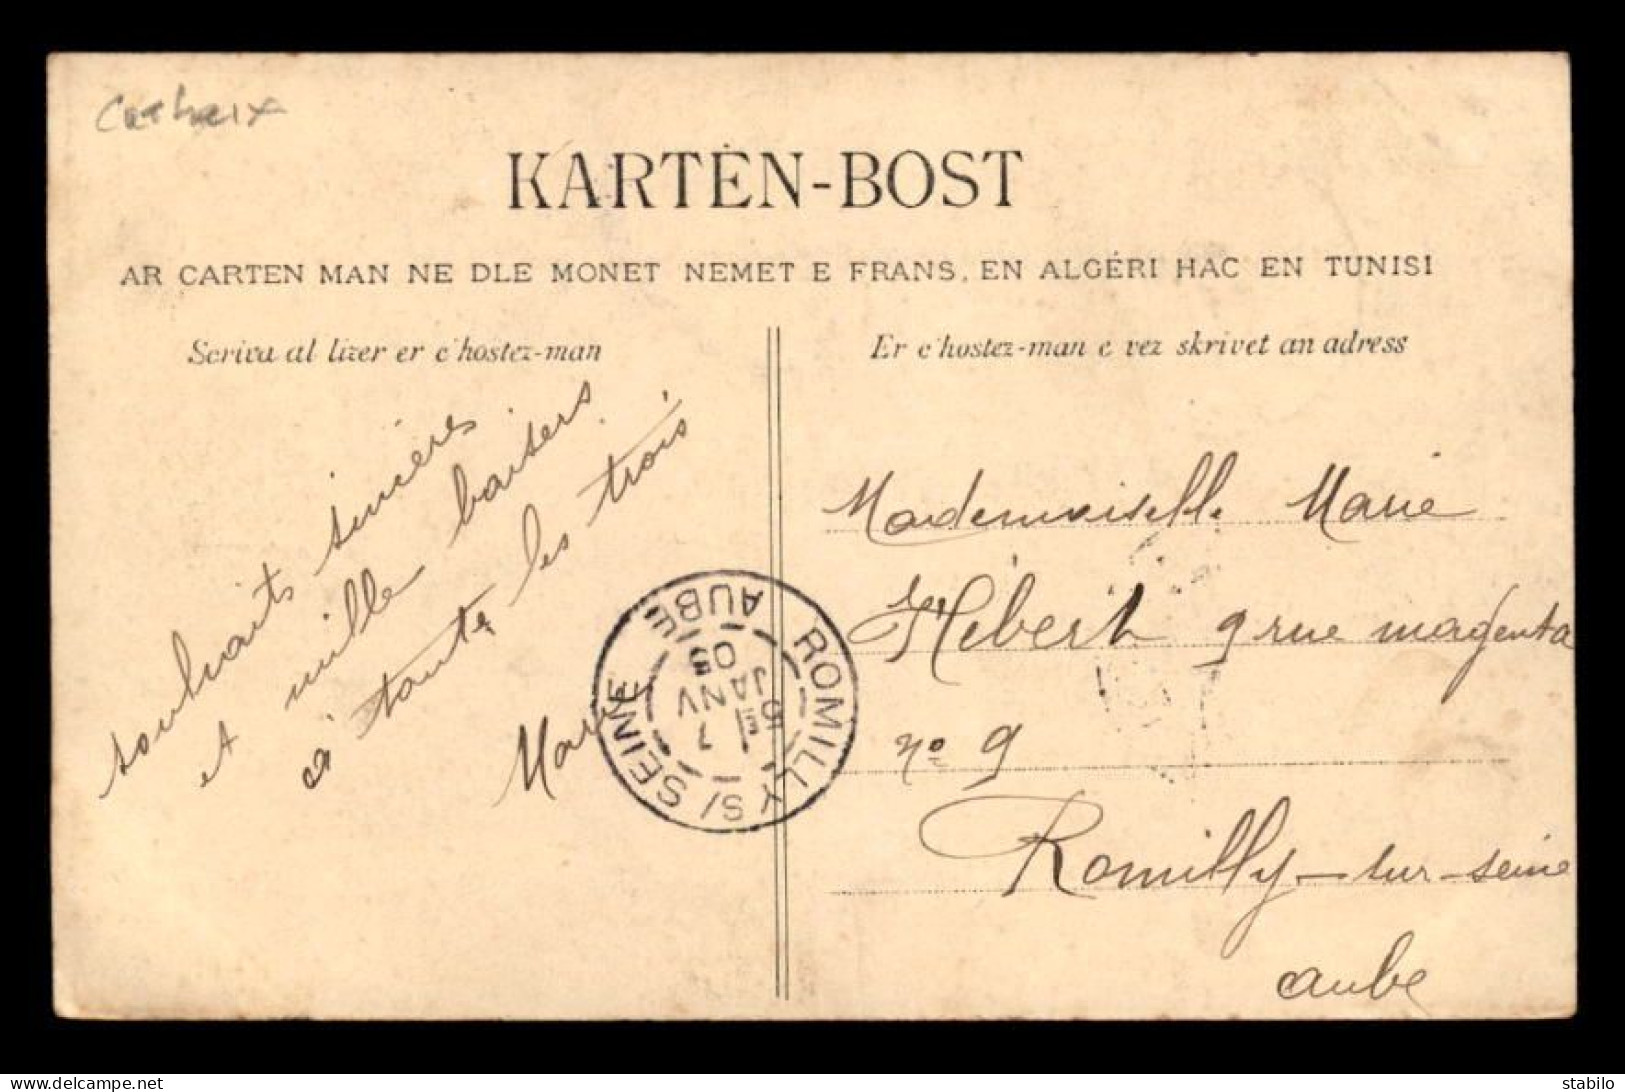 Carhaix
KARTEN-BOST
AR CARTEN MAN NE DLE MONET NEMET E FRANS, EN ALGÉRI HAC EN TUNISI
Scriva al lizer er c'hostez-man
Er c'hostez-man e vez skrivet an adress
souhaits sincères
et mille baisers
à toute les trois
Marie
ROMILLY S/ SEINE
AUBE
JANV
Mademoiselle Marie
Hébert 9 rue magenta
nº 9
Romilly-sur-seine
aube
stabilo